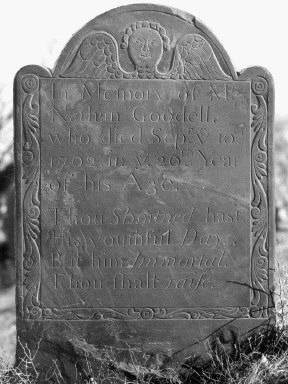 In Memory of Mr
Nathan Goodell,
who died Sept ye 10th
in ye 26th Year
of his Age.
Thou Shortned hast
his youthful Days,
But him Immortal
Thou shalt raise.